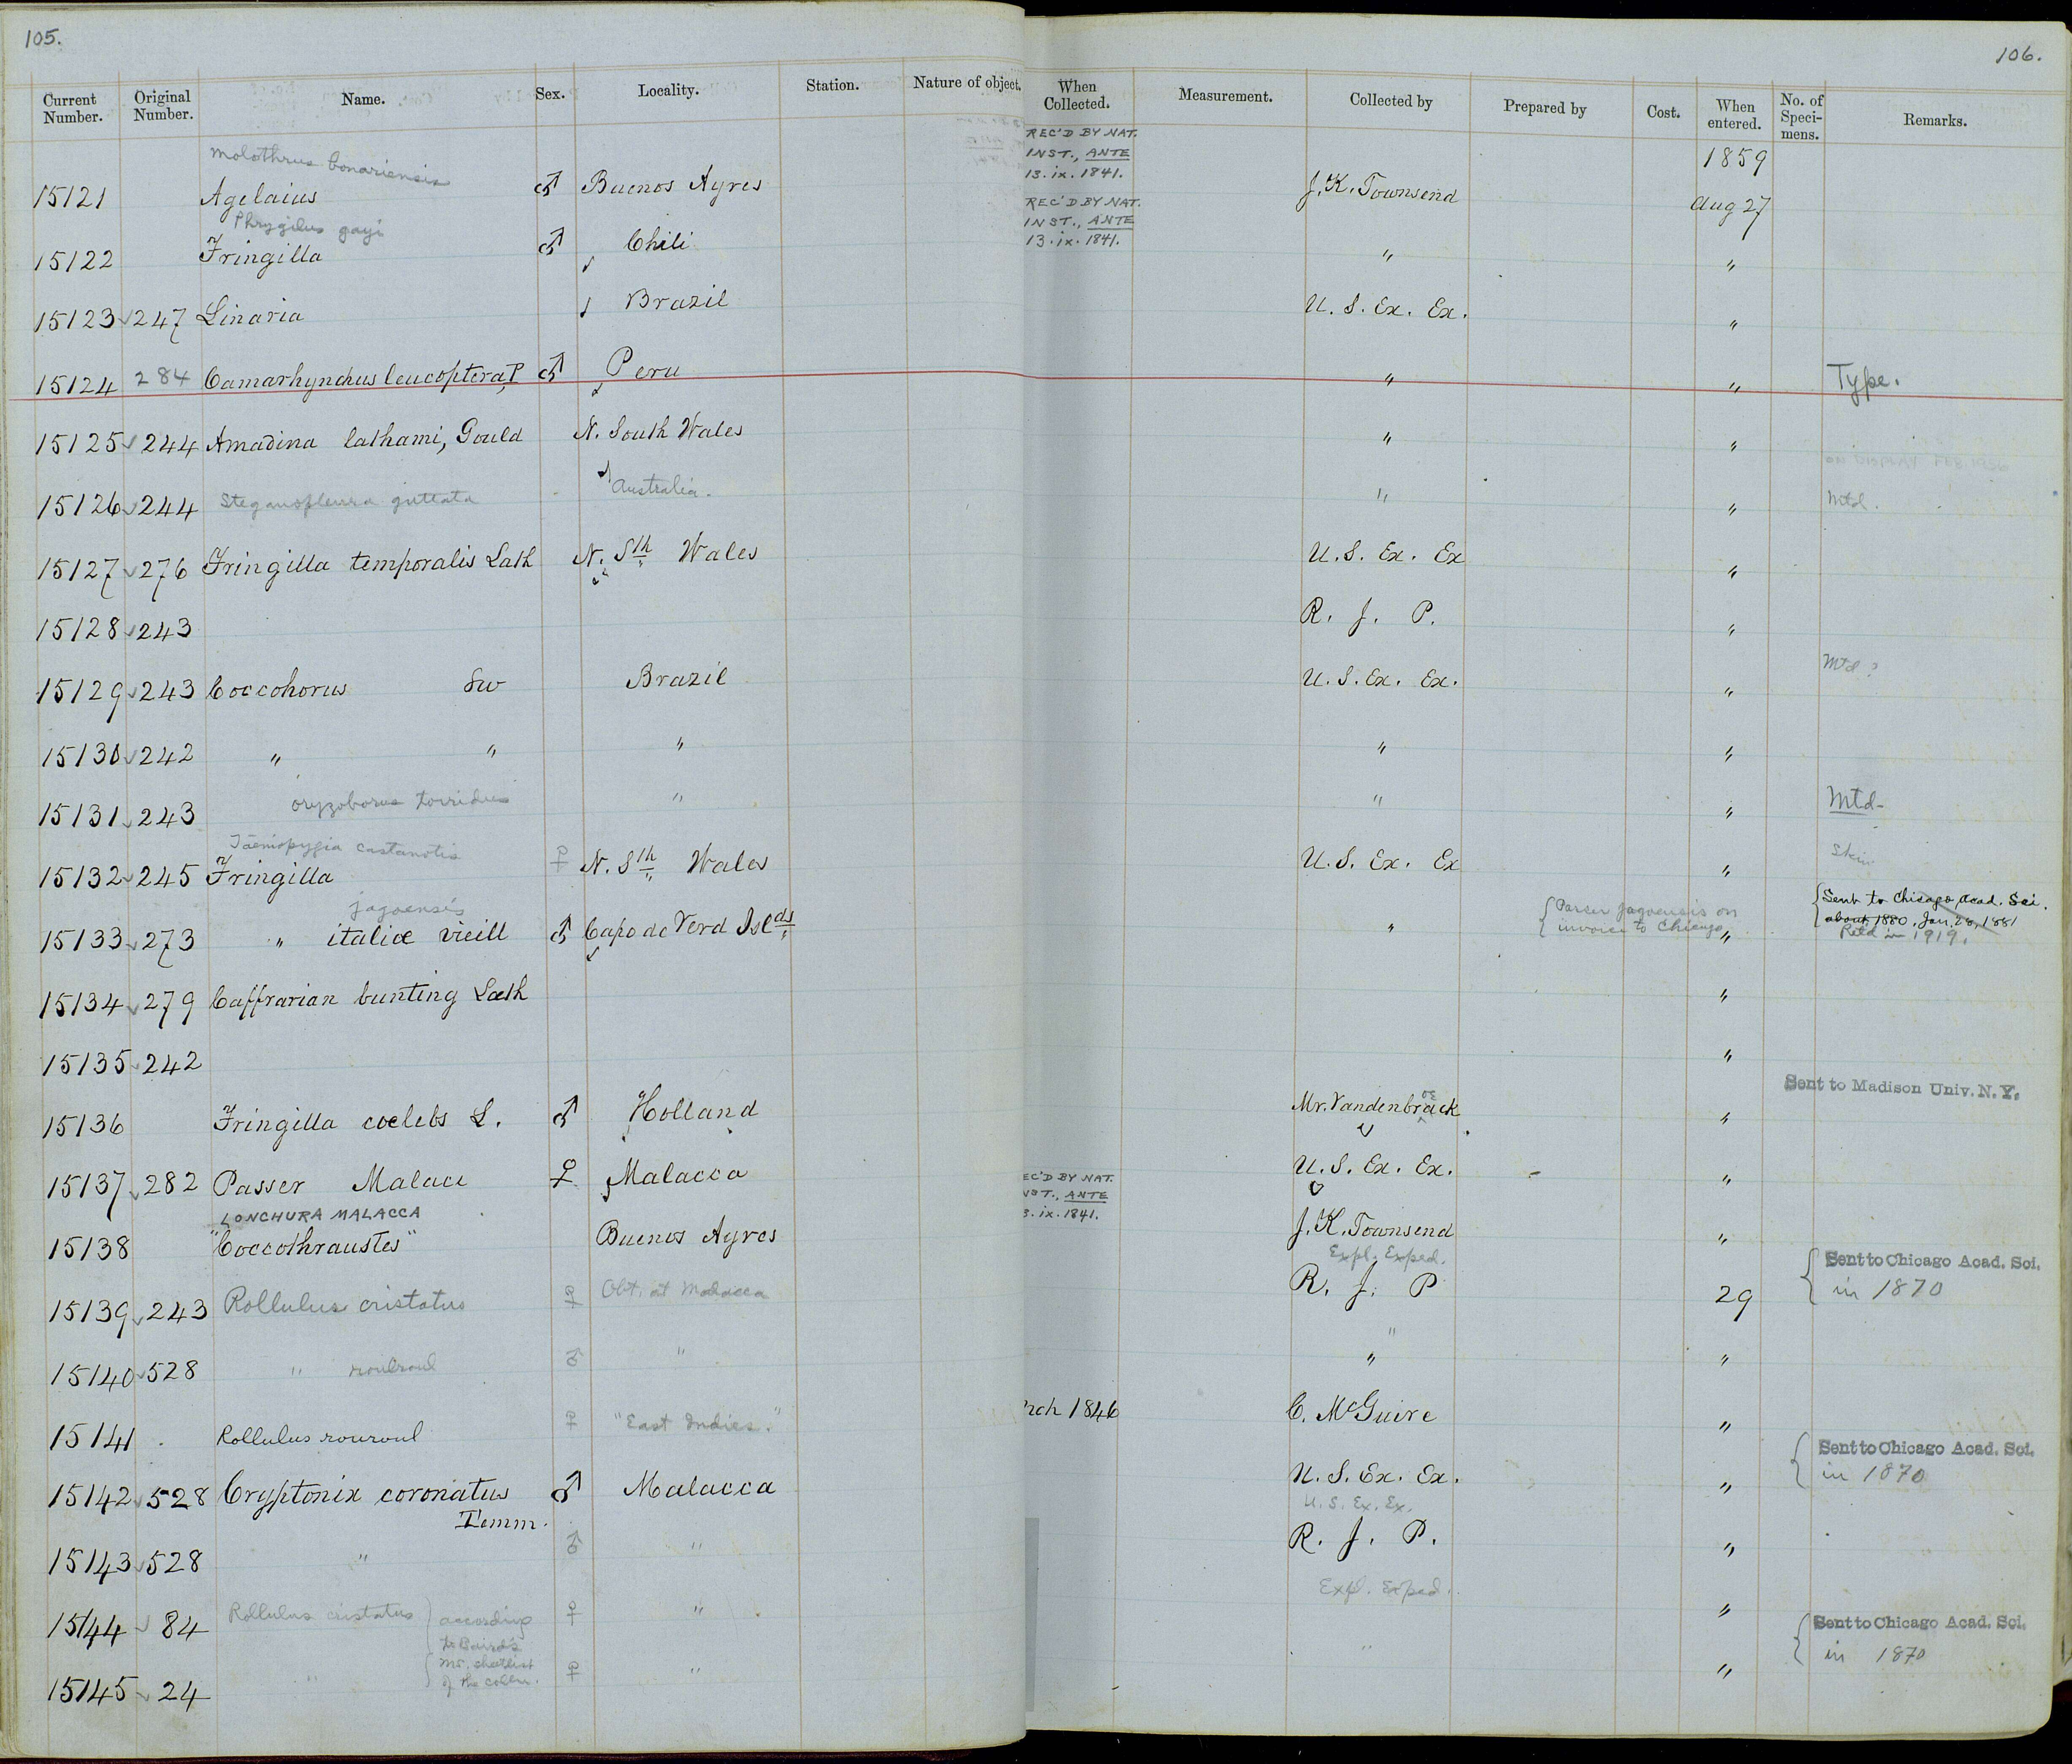 105.
106.
Current Number. Original Number. Name. Sex. Locality. Station. Nature of object. When Collected. Measurement. Collected by Prepared by Cost. When entered. No. of Speci-mens. Remarks.
Molothrus bonariensis REC'D BY NAT. INST., ANTE 13.ix.1841. 1859
15121 Agelaius ♂ Buenos Ayres J. K. Townsend Aug 27
Phrygilus gayi REC'D BY NAT. INST., ANTE 13.ix.1841.
15122 Fringilla ♂ Chili " "
15123 247 Linaria Brazil U. S. Ex. Ex. "
15124 284 Camarhynchus leucoptera, P ♂ Peru " " Type.
15125 244 Amadina lathami, Gould N. South Wales " "
15126 244 Steganopleura guttata Australia. " " Mtd.
15127 276 Fringilla temporalis Lath N. Sth Wales U. S. Ex. Ex "
15128 243 R. J. P. "
15129 243 Coccohorus Sw Brazil U. S. Ex. Ex. " Mtd?
15130 242 " " " " "
15131 243 oryzoborus torridus " " " Mtd-
Taeniopygia castanotis
15132 245 Fringilla ♀ N. Sth Wales U. S. Ex. Ex " Skin
jagoensis { Passer jagoensis on invoice to Chicago { Sent to Chicago Acad. Sci. about 1880, Jan. 28, 1881
15133 273 " italiæ vieill ♂ Cape de Verd Islds " " Retd in 1919.
15134 279 Caffrarian bunting Lath "
15135 242 "
Sent to Madison Univ. N. Y.
15136 Fringilla coelebs L. ♂ Holland Mr. Vandenbrack oe "
15137 282 Passer Malacc ♀ Malacca U. S. Ex. Ex. "
LONCHURA MALACCA EC'D BY NAT. ST., ANTE 3.ix.1841.
15138 "Coccothraustes" Buenos Ayres J. K. Townsend "
Expl. Exped. { Sent to Chicago Acad. Sci.
15139 243 Rollulus cristatus ♀ Obt. at Malacca R. J. P 29 in 1870
"
15140 528 " roulroul ♂ " " "
15141 Rollulus rouroul ♀ "East Indies." rch 1846 C. McGuire "
{ Sent to Chicago Acad. Sci.
15142 528 Cryptonix coronatus ♂ Malacca U. S. Ex. Ex. " in 1870
Temm. U. S. Ex. Ex.
15143 528 " ♂ " R. J. P. "
Expl. Exped.
15144 84 Rollulus cristatus } according ♀ " " { Sent to Chicago Acad. Sci.
to Baird's
15145 24 " { MS. of the ♀ " " " in 1870